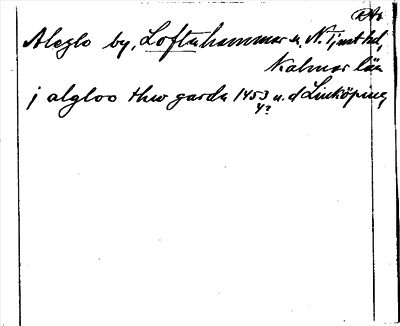 RAp
Aleglo by, Loftahammar s, N. Tjust hd,
Kalmar län
j algloo thw garda 1453 u. d Linköping
4?